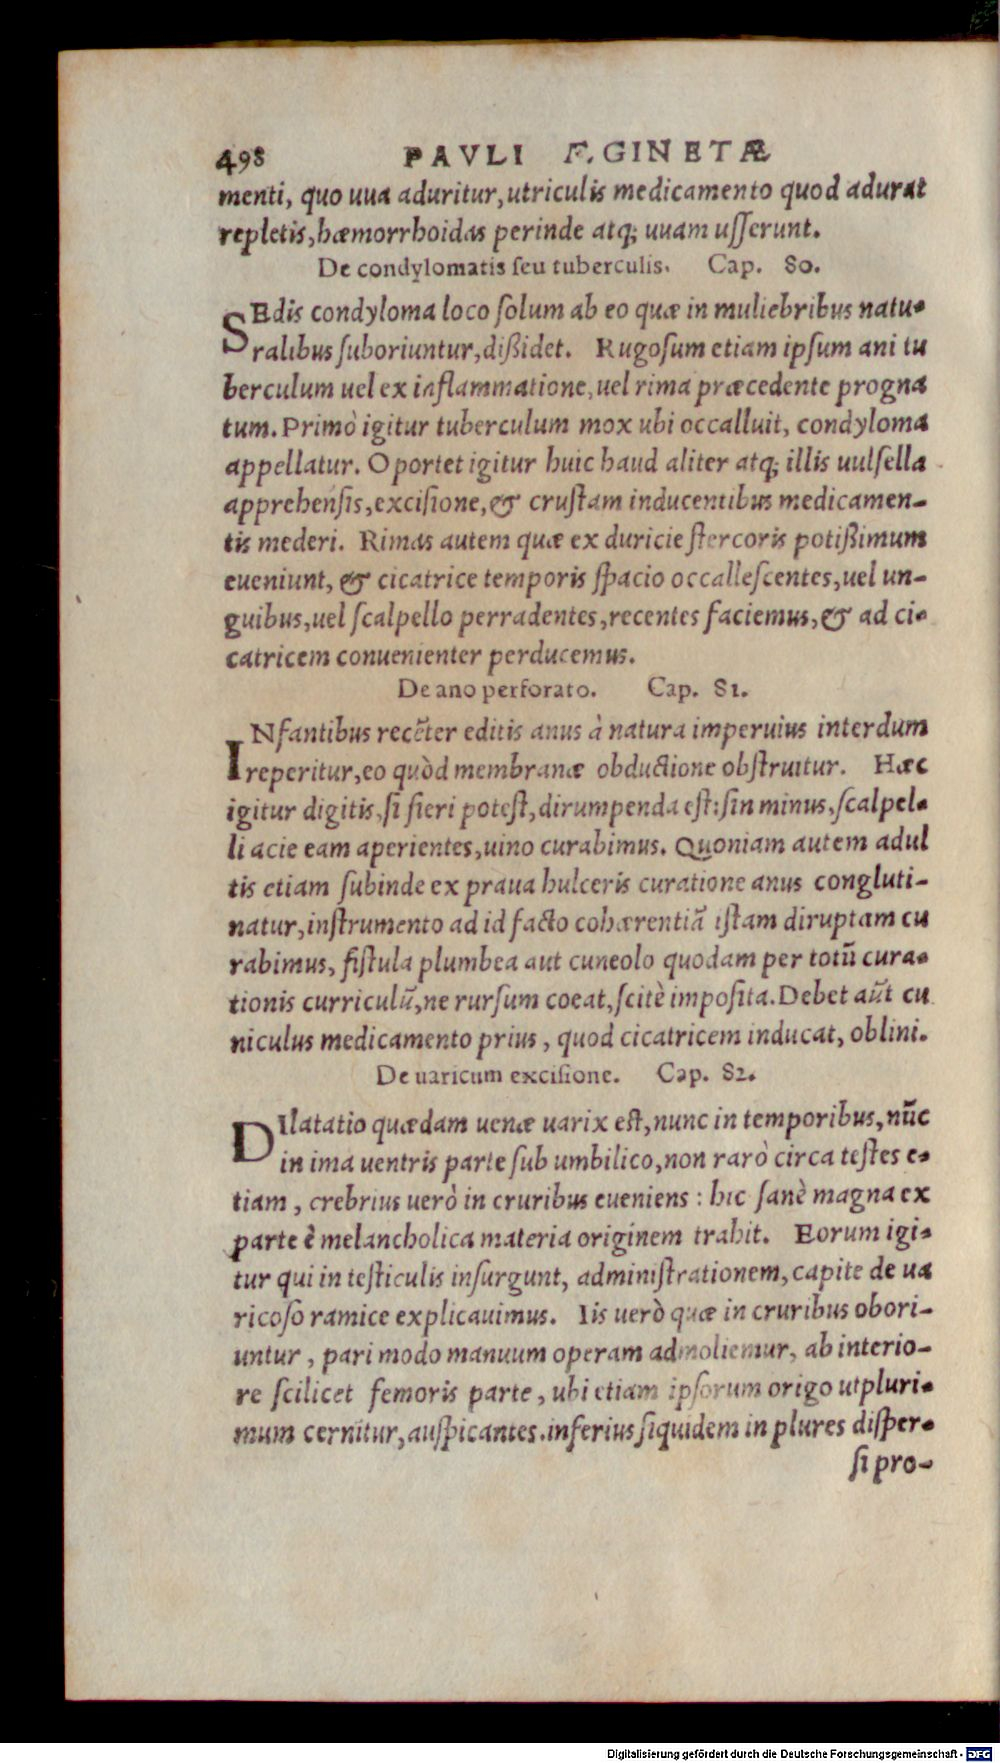 498 PAVLI ÆGINETÆ
menti, quo uua aduritur, utriculis medicamento quod adurat
repletis, hæmorrhoidas perinde atq; uuam usserunt.
De condylomatis seu tuberculis. Cap. 80.
SEdis condyloma loco solum ab eo quæ in muliebribus natu-
ralibus suboriuntur, dißidet. Rugosum etiam ipsum ani tu
berculum uel ex inflammatione, uel rima præcedente progna
tum. Primò igitur tuberculum mox ubi occalluit, condyloma
appellatur. Oportet igitur huic haud aliter atq; illis uulsella
apprehensis, excisione, & crustam inducentibus medicamen-
tis mederi. Rimas autem quæ ex duricie stercoris potißimum
eueniunt, & cicatrice temporis spacio occallescentes, uel un-
guibus, uel scalpello perradentes, recentes faciemus, & ad ci-
catricem conuenienter perducemus.
De ano perforato. Cap. 81.
INfantibus recẽter editis anus à natura imperuius interdum
reperitur, eo quòd membranæ obductione obstruitur. Hæc
igitur digitis, si fieri potest, dirumpenda est: sin minus, scalpel-
li acie eam aperientes, uino curabimus. Quoniam autem adul
tis etiam subinde ex praua hulceris curatione anus congluti-
natur, instrumento ad id facto cohærentiã istam diruptam cu
rabimus, fistula plumbea aut cuneolo quodam per totũ cura-
tionis curriculũ, ne rursum coeat, scitè imposita. Debet aũt cu
niculus medicamento prius, quod cicatricem inducat, oblini.
De uaricum excisione. Cap. 82.
DIlatatio quædam uenæ uarix est, nunc in temporibus, nũc
in ima uentris parte sub umbilico, non rarò circa testes e-
tiam, crebrius uerò in cruribus eueniens: hic sanè magna ex
parte è melancholica materia originem trahit. Eorum igi-
tur qui in testiculis insurgunt, administrationem, capite de ua
ricoso ramice explicauimus. Iis uerò quæ in cruribus obori-
untur, pari modo manuum operam admoliemur, ab interio-
re scilicet femoris parte, ubi etiam ipsorum origo utpluri-
mum cernitur, auspicantes. inferius siquidem in plures disper-
si pro-
Digitalisierung gefördert durch die Deutsche Forschungsgemeinschaft - DFG